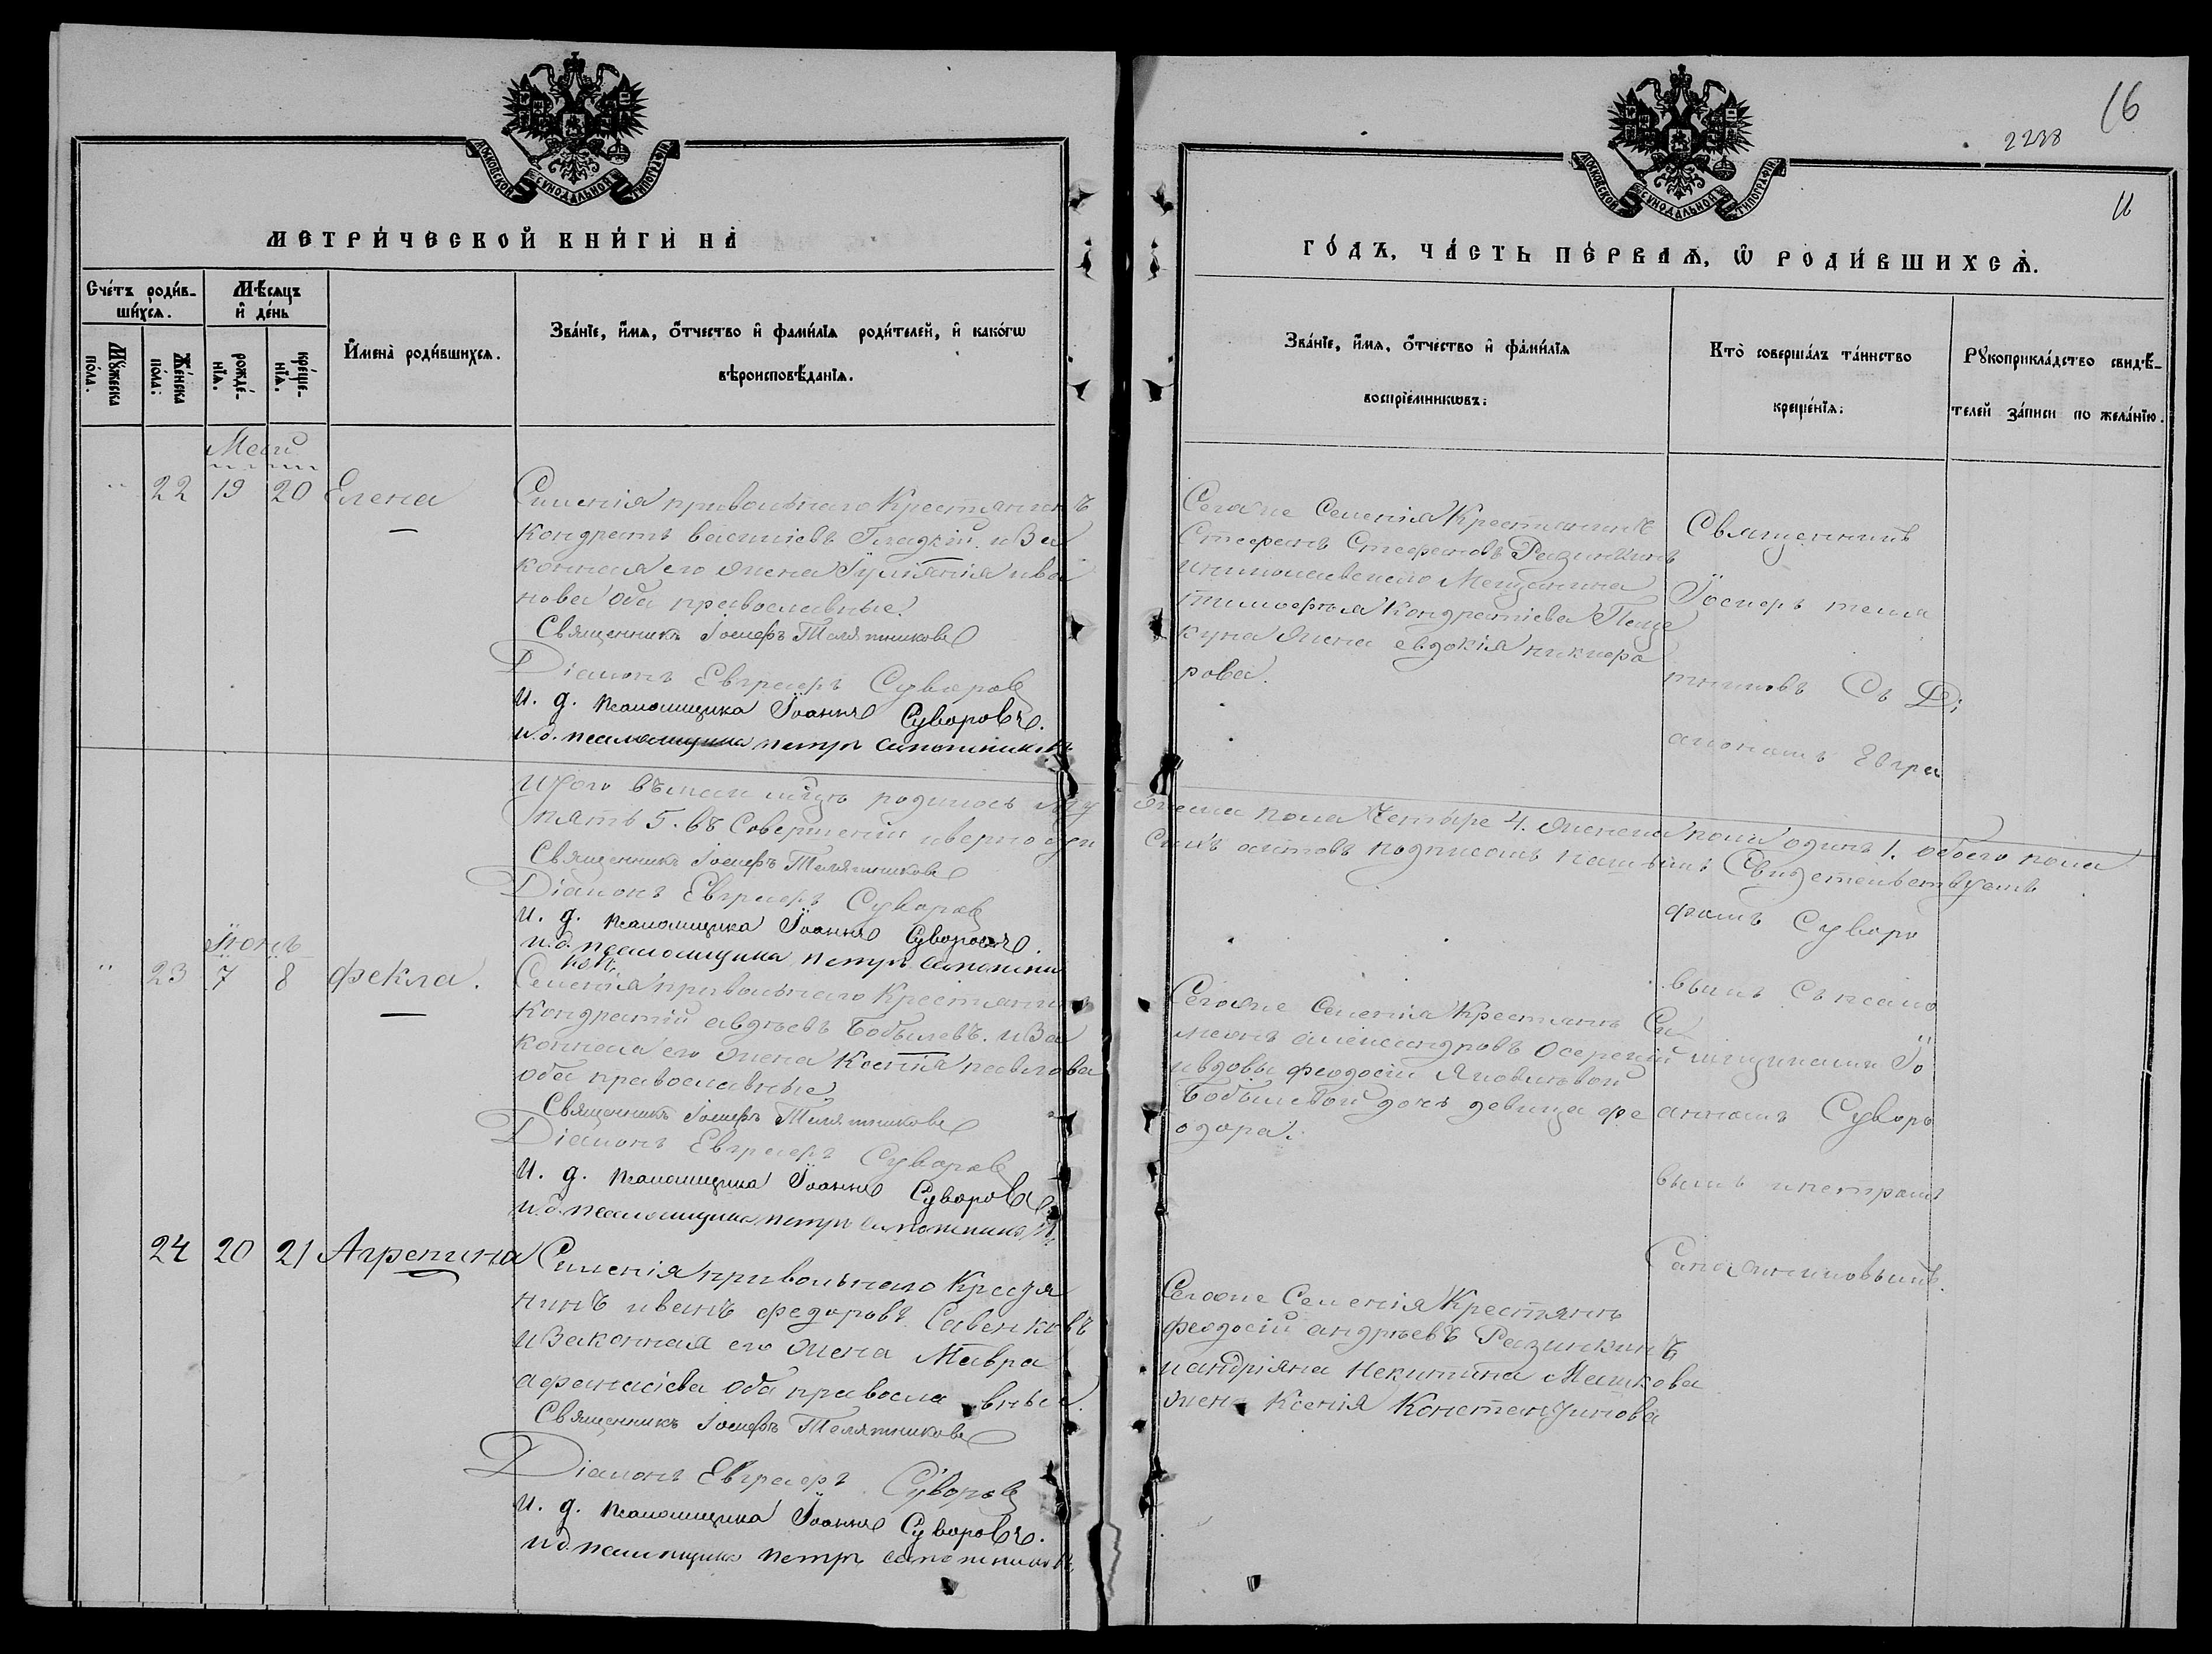 МОСКОВСКОЙ СУНОДАЛЬНОЙ ТИПОГРАФІИ
МЕТРИ́ЧЕСКОЙ КНИ́ГИ НА̀
Сче́тъ роди́в-
ши́хсѧ.
Мѣ́сѧцъ
и҆ де́нь
Мꙋ́жеска
по́ла.
Же́нска
по́ла:
рожде́-
нїѧ.
креще́-
нїѧ.
И҆мена̀ роди́вшихсѧ.
Зва́нїе, и҆́мѧ, ѻ҆́тчество и҆ фами́лїѧ роди́телей, и҆ како́гѡ
вѣроисповѣ́данїѧ.
Май
22 19 20 Елена
Селенія привольнаго Крестянинъ
Кондратъ василіевъ Гладкій. и За
конная его жена Іуліянія ива
нова оба православные.
Священникъ Іосифъ Телятниковъ
Діаконъ Евграфъ Суворовъ
и. д. псаломщика Іоаннъ Суворовъ.
и. д. псаломщика петръ сапожниковъ
Итого въ маи мѣсцѣ родилось му
пять 5. въ Совершеніи и верности
Священникъ Іосифъ Телятниковъ
Діаконъ Евграфъ Суворовъ
и. д. псаломщика Іоаннъ Суворовъ.
и. д. псаломщика петръ сапожни
ковъ
Іюнь
23 7 8 Фекла.
Селенія привольнаго Крестянинъ
Кондратій авдѣевъ Бобылевъ. и За
конная его жена Ксенія павлова
оба православные
Священникъ Іосифъ Телятниковъ
Діаконъ Евграфъ Суворовъ
и. д. псаломщика Іоаннъ Суворовъ
и. д. псаломщика петръ сапожниковъ
24 20 21 Агрепина
Силенія привольнаго Крестя
нинъ иванъ федоровъ Савенковъ
и Законная его жена Мавра
афанасіева оба православные.
Священникъ Іосифъ Телятниковъ
Діаконъ Евграфъ Суворовъ
и. д. псаломщика Іоаннъ Суворовъ.
и д. псаломщика петръ сапожниковъ
16
2238
МОСКОВСКОЙ СУНОДАЛЬНОЙ ТИПОГРАФІИ
ГО́ДЪ, ЧА́СТЬ ПЕ́РВАѦ, Ѡ҆ РОДИ́ВШИХСѦ.
Зва́нїе, и҆́мѧ, ѻ҆́тчество и҆ фами́лїѧ
воспрїе́мникѡвъ:
Кто̀ соверша́лъ та́инство
креще́нїѧ:
Рꙋкоприкла́дство свидѣ́-
телей за́писи по жела́нїю.
Сегоже Селенія Крестянинъ
Стефанъ Стефановъ Разинкинъ
мещанина
тимофѣя Кондратіева Пеще
куна жена евдокія никифо
рова.
Священникъ
Іосифъ теля
тниковъ Съ Ді
акономъ Евгра
жеска пола Четыре 4. женска пола одинъ 1. обоего пола
Сихъ актовъ подписомъ нашимъ Свидетельствуемъ
фомъ Суворо
вымъ Съ псало
мщиками Іо
анномъ Суворо
вымъ и петромъ
Сапожниковымъ.
Сегоже Селенія Крестянинъ Си
меонъ александровъ
и вдовы феодосіи
Бобылевой дочь девица фе
одора.
Сегоже Селенія Крестянинъ
феодосій андрѣевъ Разинкинъ
и андріяна Никитина Машкова
жена Ксенія Константинова